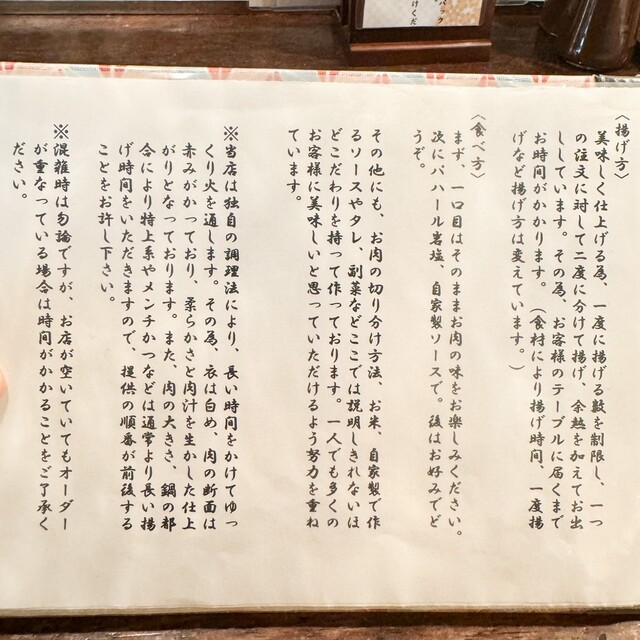 〈揚げ方〉
美味しく仕上げる為、一度に揚げる数を制限し、一つ
の注文に対して二度に分けて揚げ、余熱を加えてお出
ししています。その為、お客様のテーブルに届くまで
お時間がかかります。（食材により揚げ時間、一度揚
げなど揚げ方は変えています。）
〈食べ方〉
まず、一口目はそのままお肉の味をお楽しみください。
次にパハール岩塩、自家製ソースで。後はお好みでど
うぞ。
その他にも、お肉の切り分け方法、お米、自家製で作
るソースやタレ、副菜などここでは説明しきれないほ
どこだわりを持って作っております。一人でも多くの
お客様に美味しいと思っていただけるよう努力を重ね
ています。
※当店は独自の調理法により、長い時間をかけてゆっ
くり火を通します。その為、衣は白め、肉の断面は
赤みがかっており、柔らかさと肉汁を生かした仕上
がりとなっております。また、肉の大きさ、鍋の都
合により特上系やメンチかつなどは通常より長い揚
げ時間をいただきますので、提供の順番が前後する
ことをお許し下さい。
※混雑時は勿論ですが、お店が空いていてもオーダー
が重なっている場合は時間がかかることをご了承く
ださい。